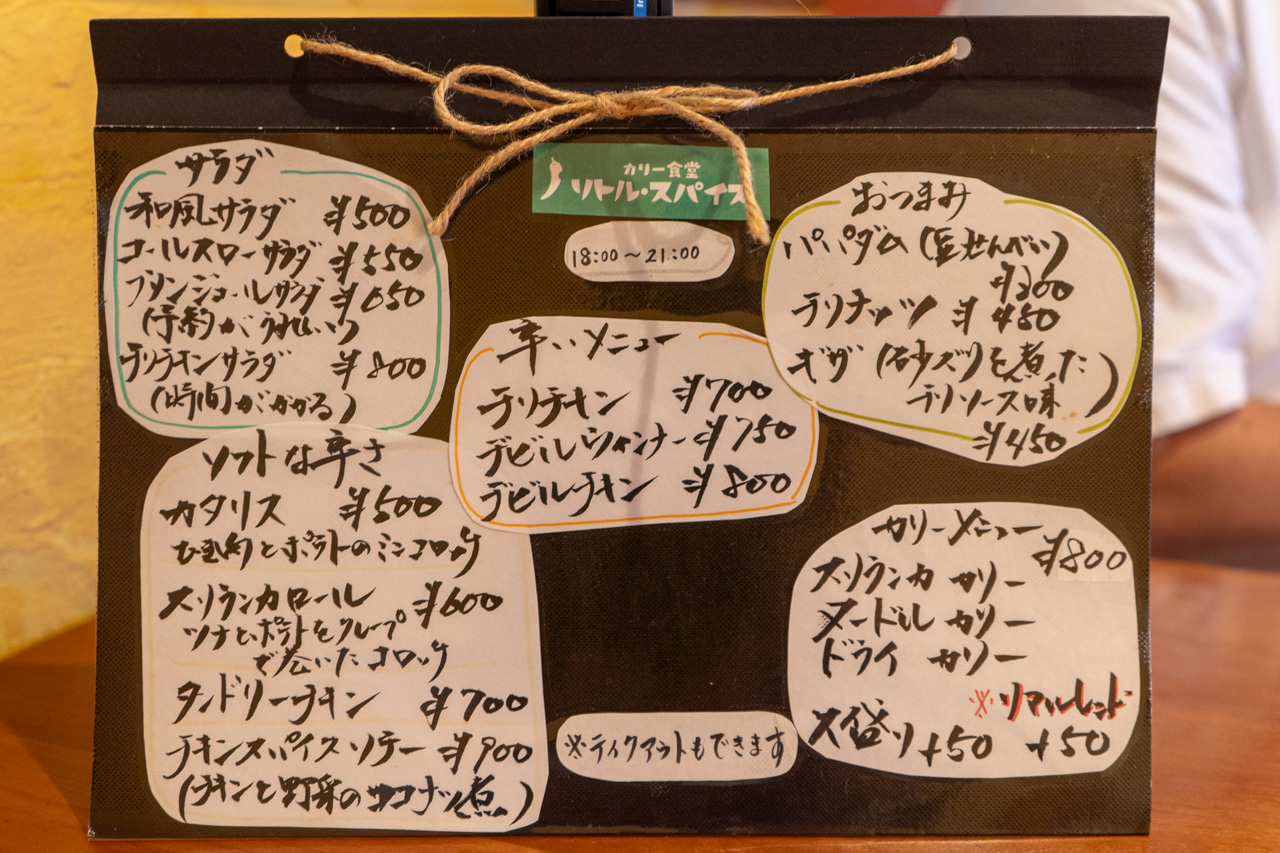 カリー食堂
リトル・スパイス
18:00～21:00
サラダ
和風サラダ ¥500
コールスローサラダ ¥550
ブタンジョールサラダ ¥650
(予約がうれしい)
テリチキンサラダ ¥800
(時間がかかる)
おつまみ
パパダム (豆せんべい)
¥200
デリナッツ ¥480
ギザ (砂ズリを煮た
デリソース味)
¥450
辛いメニュー
テリチキン ¥700
デビルウィンナー ¥750
デビルチキン ¥800
ソフトな辛さ
カタリス ¥500
ひき肉とポテトのミンコロッケ
スリランカロール ¥600
ツナとポテトをクレープ
で巻いたコロッケ
タンドリーチキン ¥700
チキンスパイスソテー ¥900
(チキンと野菜のココナッツ煮)
カリーメニュー
¥800
スリランカ カリー
ヌードル カリー
ドライ カリー
※リマレッド
大盛り+50 +50
※テイクアウトもできます